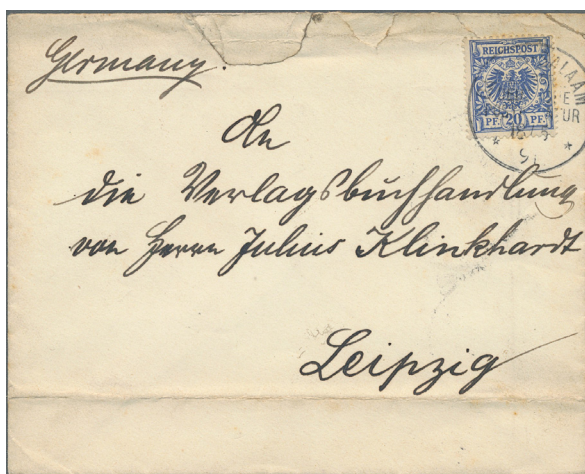 Germany.
REICHSPOST
PF. 20 PF.
ALAAM
An
die Verlagsbuchhandlung
von Herrn Julius Klinkhardt
Leipzig